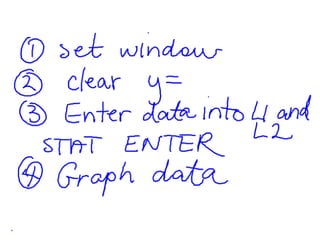 ① set window
② clear y=
③ Enter data into L1 and L2
STAT ENTER
④ Graph data